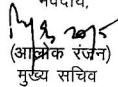 भवदीय,
(आलोक रंजन)
मुख्य सचिव